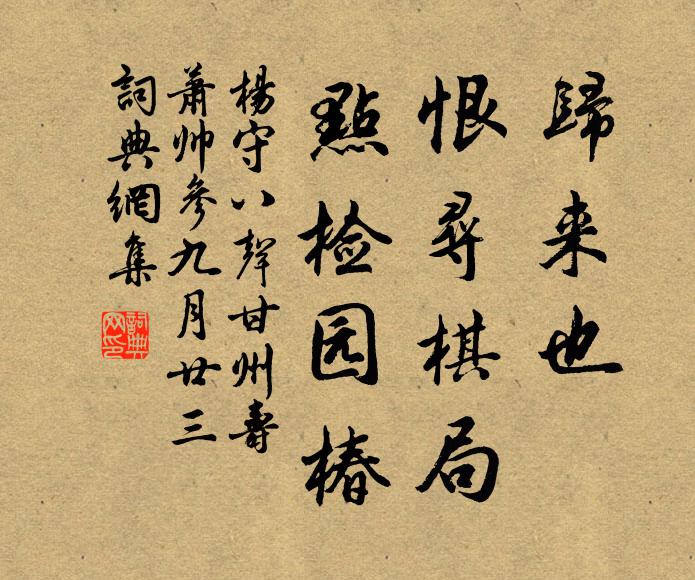 歸来也
恨尋棋局
點检园椿
楊守八聲甘州壽
蕭帅參九月廿三
詞典網集
詞典网印